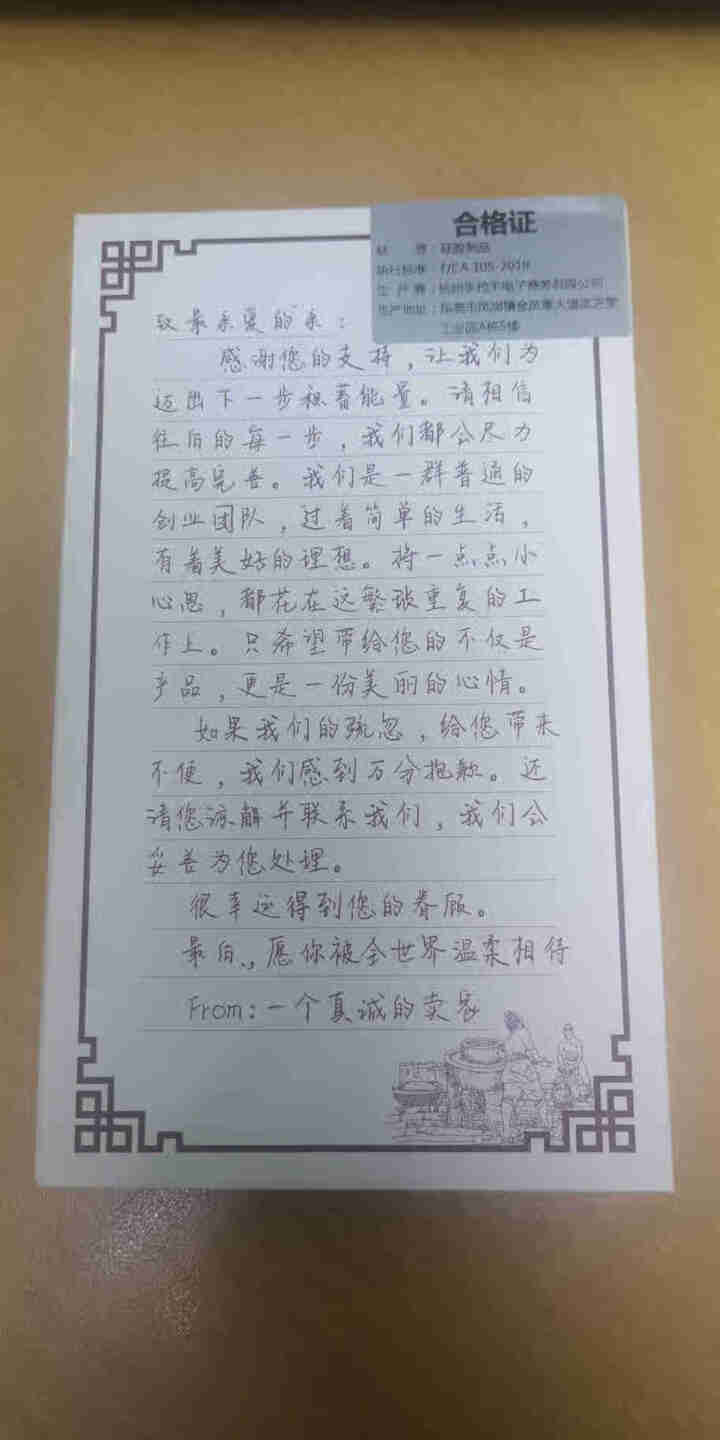 合格证
材 质：硅胶制品
执行标准：T/CA 105-2019
生 产 商：杭州手拉手电子商务有限公司
生产地址：东莞市凤岗镇金凤凰大道
工业园A栋5楼
致最亲爱的亲：
感谢您的支持，让我们为
迈出下一步积蓄能量。请相信
往后的每一步，我们都会尽力
提高完善。我们是一群普通的
创业团队，过着简单的生活，
有着美好的理想。将一点点小
心思，都花在这繁琐重复的工
作上。只希望带给您的不仅是
产品，更是一份美丽的心情。
如果我们的疏忽，给您带来
不便，我们感到万分抱歉。还
请您谅解并联系我们，我们会
妥善为您处理。
很幸运得到您的眷顾。
最后，愿你被全世界温柔相待
From：一个真诚的卖家